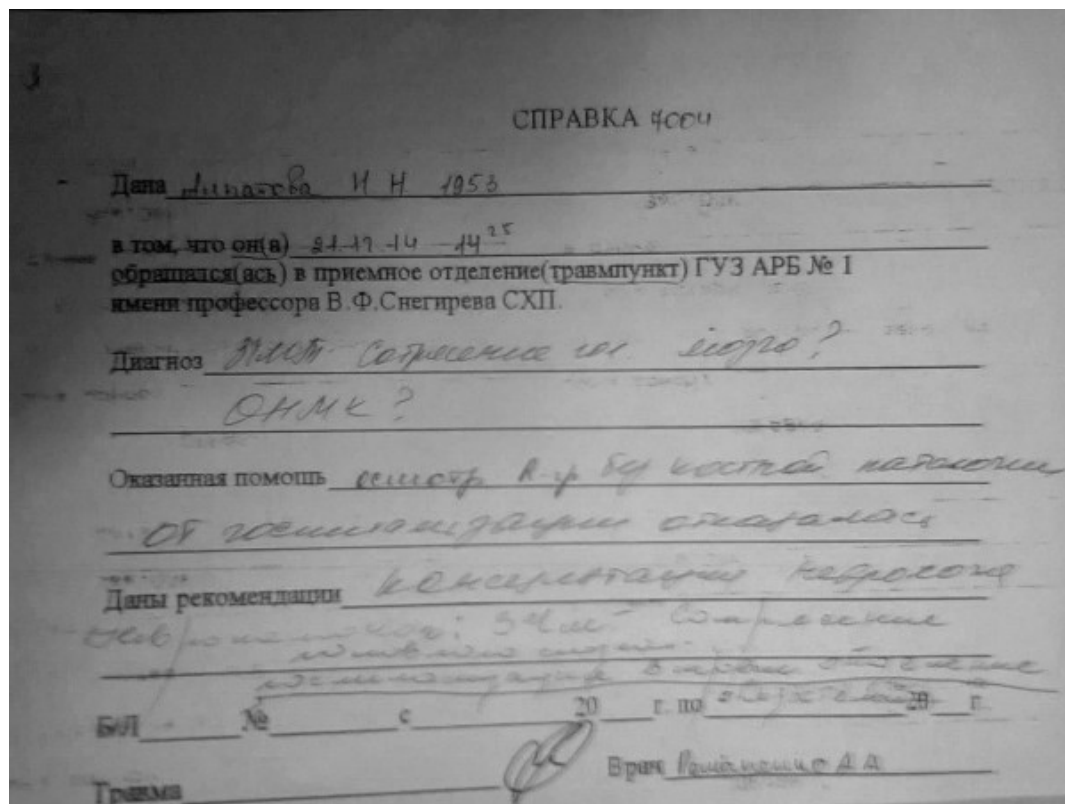 3
СПРАВКА 4004
Дана Липатова И Н 1953
в том, что он(а) 21.12.14 14 25
обращался(ась) в приемное отделение(травмпункт) ГУЗ АРБ № 1
имени профессора В.Ф.Снегирева СХП.
Диагноз ЗЧМТ Сотрясение гол. мозга?
ОНМК?
Оказанная помощь осмотр R-гр без костной патологии
от госпитализации отказалась
Даны рекомендации консультация невролога
ЗЧМТ Сотрясение
головного мозга
госпитализация в отделение
Б/Л № с 20 г. по 20 г.
Травма Врач Романенко А А